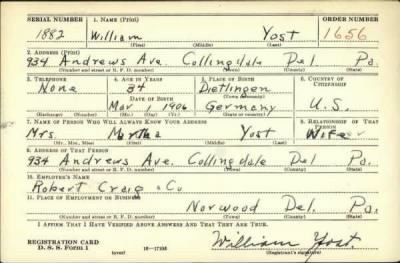 SERIAL NUMBER 1. NAME (Print) ORDER NUMBER
1882 William Yost 1656
(First) (Middle) (Last)
2. ADDRESS (Print)
934 Andrews Ave. Collingdale Del Pa.
(Number and street or R. F. D. number) (Town) (County) (State)
3. TELEPHONE 4. AGE IN YEARS 5. PLACE OF BIRTH 6. COUNTRY OF CITIZENSHIP
None 34 Dietlingen
DATE OF BIRTH (Town or county)
Mar 1 1906 Germany U.S.
(Exchange) (Number) (Mo.) (Day) (Yr.) (State or country)
7. NAME OF PERSON WHO WILL ALWAYS KNOW YOUR ADDRESS 8. RELATIONSHIP OF THAT PERSON
Mrs. Martha Yost Wife
(Mr., Mrs., Miss) (First) (Middle) (Last)
9. ADDRESS OF THAT PERSON
934 Andrews Ave. Collingdale Del Pa.
(Number and street or R. F. D. number) (Town) (County) (State)
10. EMPLOYER'S NAME
Robert Craig & Co
11. PLACE OF EMPLOYMENT OR BUSINESS
Norwood Del. Pa.
(Number and street or R. F. D. number) (Town) (County) (State)
I AFFIRM THAT I HAVE VERIFIED ABOVE ANSWERS AND THAT THEY ARE TRUE.
REGISTRATION CARD
D. S. S. Form 1 (over) 16—17105 William Yost
(Registrant's signature)